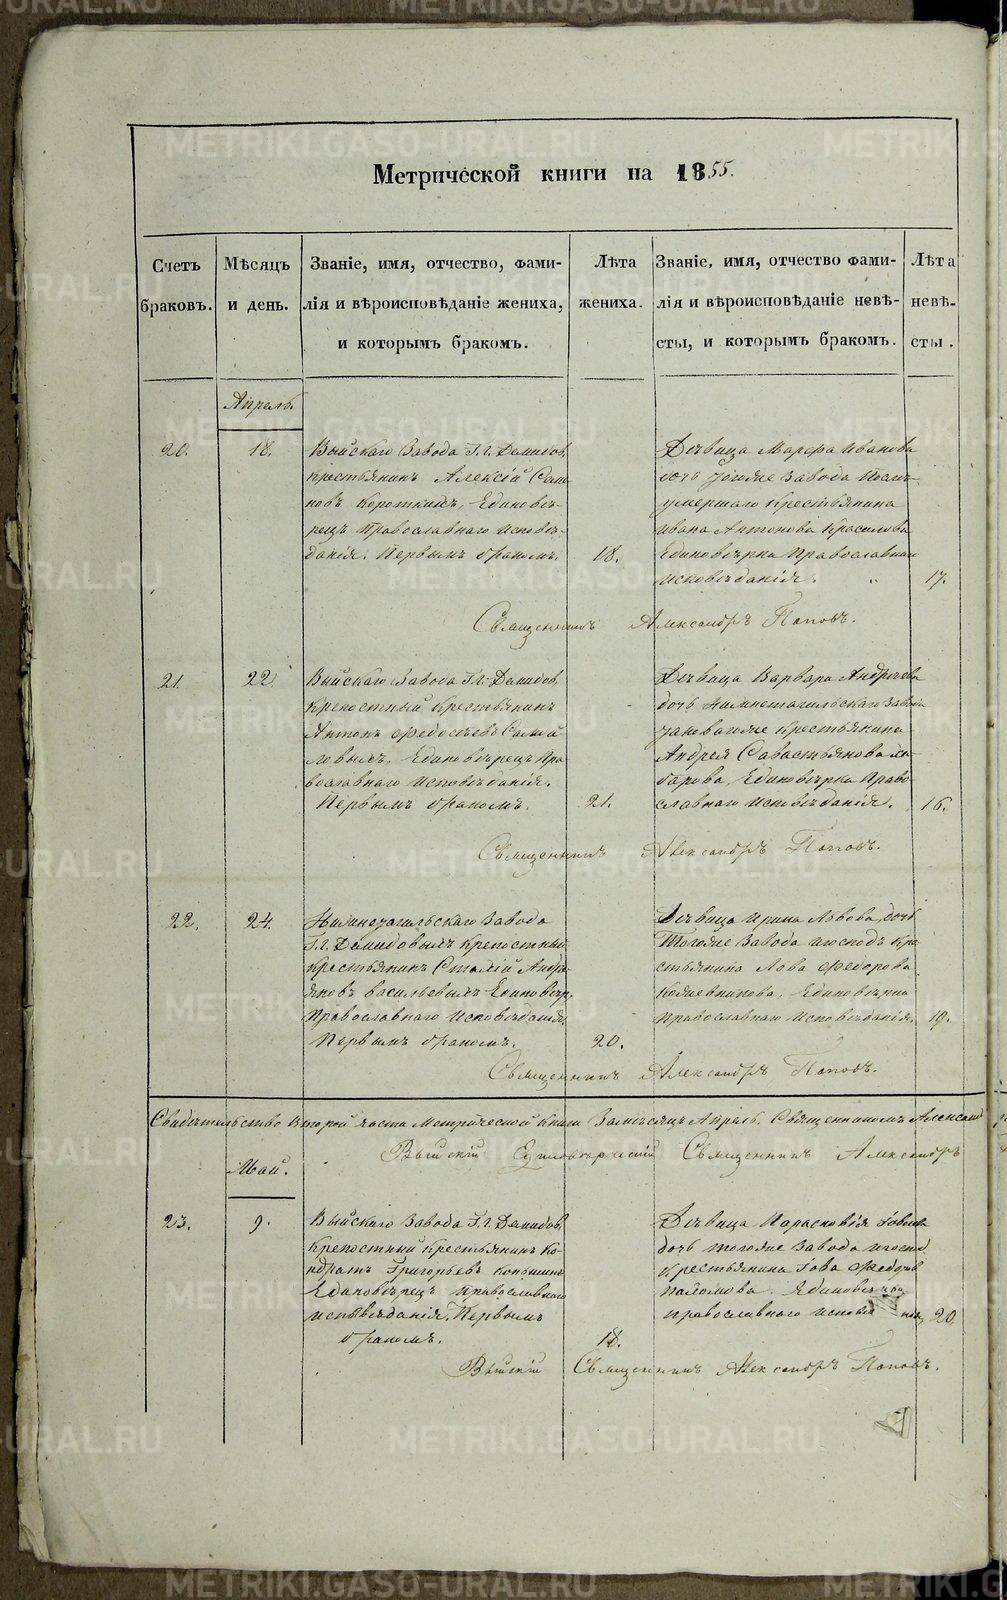 Метрической книги на 1855.
Счетъ браковъ.
Мѣсяцъ и день.
Званіе, имя, отчество, фами-
лія и вѣроисповѣданіе жениха,
и которымъ бракомъ.
Лѣта жениха.
Званіе, имя, отчество фами-
лія и вѣроисповѣданіе невѣ-
сты, и которымъ бракомъ.
Лѣта невѣ-
сты.
Апрель.
20.
18.
Выйскаго Завода Г.г. Демидов,
крестьянинъ Алексій Семе-
новъ Короткихъ, Единовѣ-
рецъ православнаго исповѣ-
данія. Первымъ бракомъ.
18.
Дѣвица Марѳа Иванова
дочь тогоже завода
умершаго крестьянина
Ивана Антонова Красилова
Единовѣрка Православнаго
исповѣданія.
17.
Священникъ Александръ Поповъ.
21.
22.
Выйскаго Завода Г.г. Демидов,
крепостный крестьянинъ
Антонъ Федосѣевъ
Единовѣрецъ Пра-
вославнаго исповѣданія.
Первымъ бракомъ.
21.
Дѣвица Варвара Андрѣева
дочь Нижнетагильскаго Завода
крестьянина
Андрея Савастьянова
Единовѣрка Право-
славнаго исповѣданія.
16.
Священникъ Александръ Поповъ.
22.
24.
Нижнетагильскаго Завода
Г.г. Демидовыхъ крепостный
крестьянинъ Андре-
яновъ Васильевыхъ Единовѣр.
Православнаго исповѣданія.
Первымъ бракомъ.
20.
Дѣвица Ирина Львова, дочь
Тогоже Завода и господъ кре-
стьянина Льва Федорова
Кожевникова, Единовѣрка
православнаго исповѣданія.
19.
Священникъ Александръ Поповъ.
Свидѣтельство второй части Метрической книги За мѣсяцъ Апрѣль, Священникомъ Александ
Выйскій Единовѣрческій Священникъ Александръ
Май.
23.
9.
Выйскаго Завода Г.г. Демидов,
крепостный крестьянинъ Ко-
ндратъ Григорьевъ Коньшинъ
Единовѣрецъ православнаго
исповѣданія. Первымъ
бракомъ.
18.
Дѣвица Парасковія Іовлева
дочь тогоже завода и господ.
крестьянина Іова Федоров
Единовѣрка
православнаго
20.
Выйскій Священникъ Александръ Поповъ.
METRIKI.GASO-URAL.RU